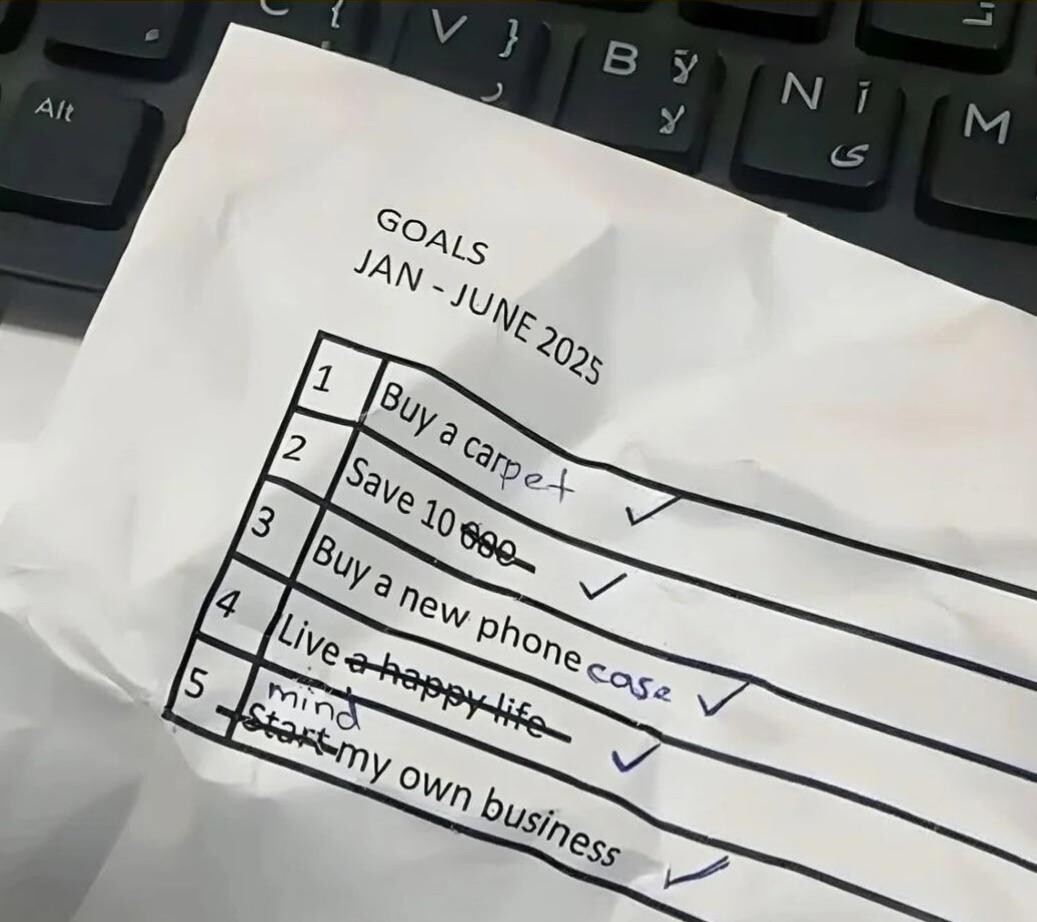 V }
B
N
Alt
M
ى
GOALS
JAN - JUNE 2025
1 Buy a carpet ✓
2 Save 10 000 ✓
3 Buy a new phone case ✓
4 Live a happy life ✓
5 mind
Start my own business ✓